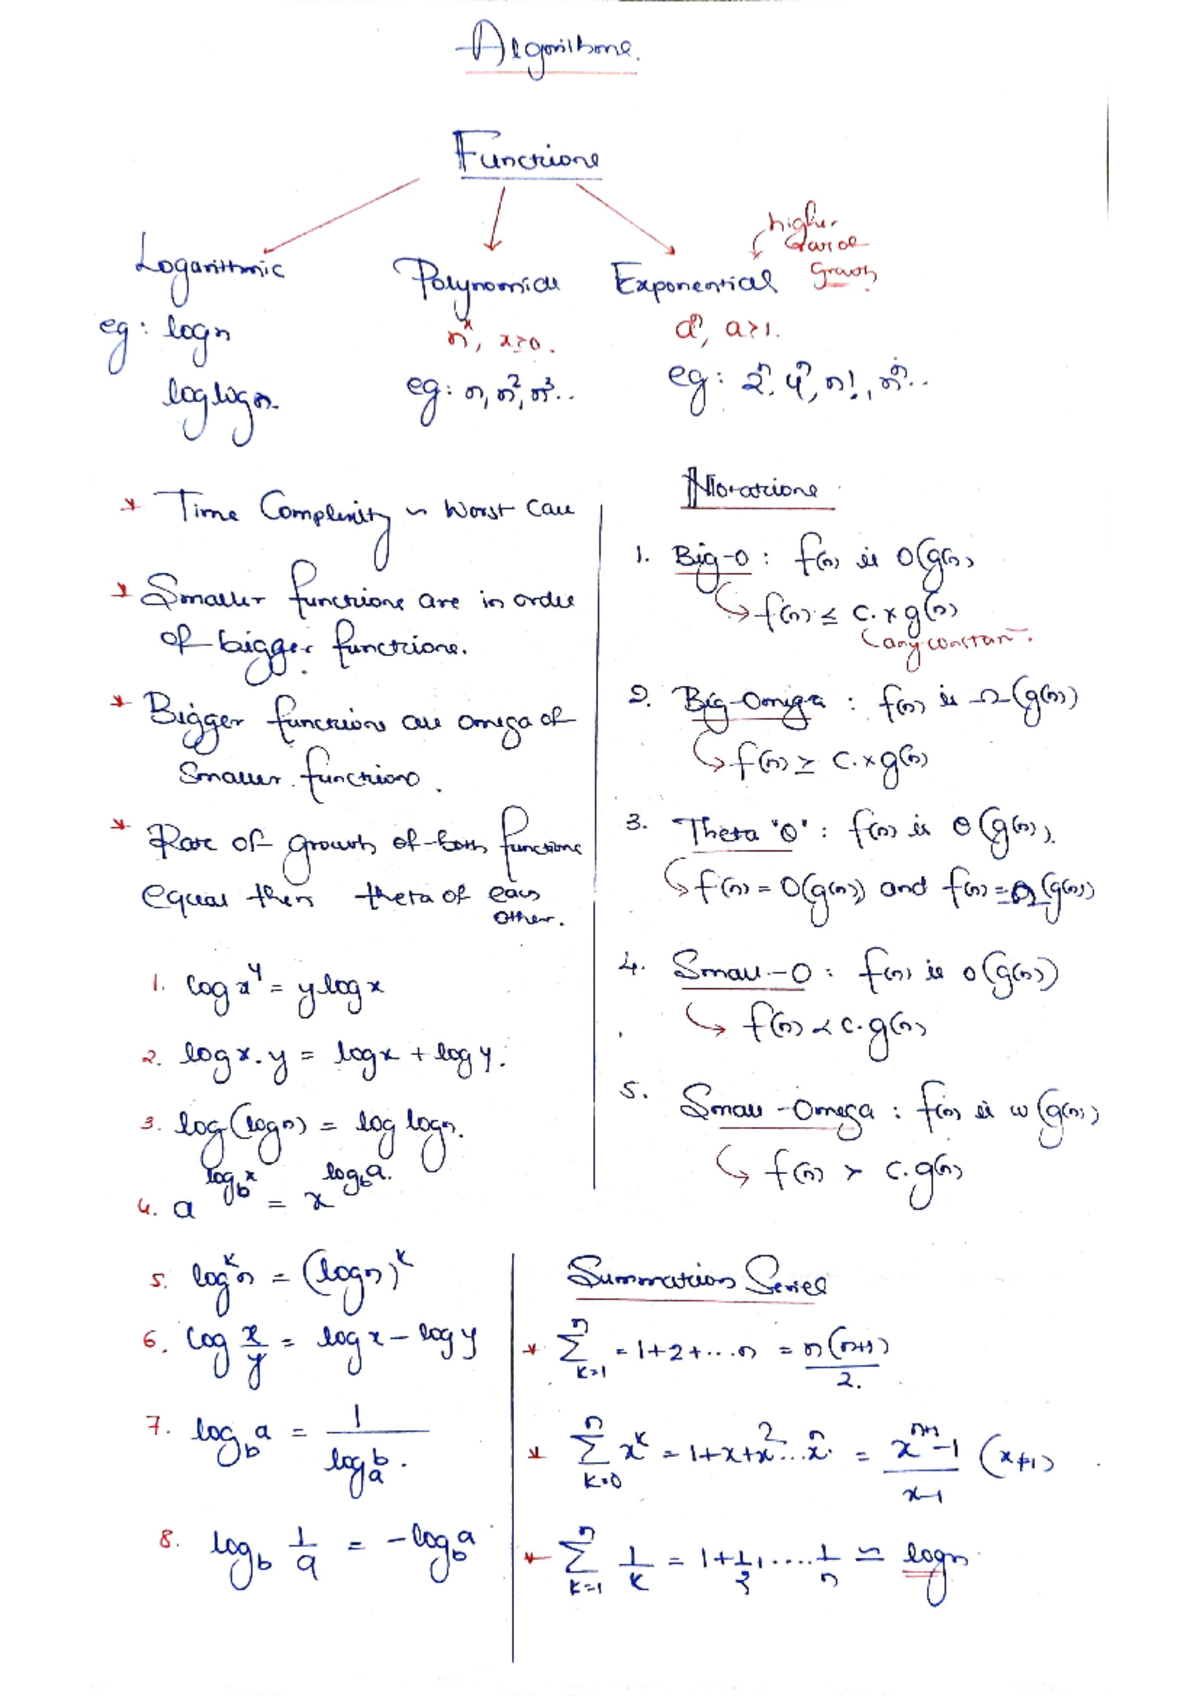 Algorithms.
Functions
Logarithmic
eg: logn
loglogn.
Polynomial
n^x, x>0.
eg: n, n^2, n^3..
Exponential
higher
rate of
growth
a^n, a>1.
eg: 2^n, 4^n, n!, n^n..
* Time Complexity ~ Worst Case
* Smaller functions are in order
of bigger functions.
* Bigger functions are omega of
Smaller functions.
* Rate of growth of both functions
equal then theta of each
other.
1. log x^y = y log x
2. log x.y = log x + log y.
3. log(logn) = log logn.
4. a^(log_b x) = x^(log_b a).
5. log^k n = (logn)^k
6. log x/y = log x - log y
7. log_b a = 1/log_a b.
8. log_b 1/a = -log_b a
Notations
1. Big-O : f(n) is O(g(n))
f(n) ≤ c.×g(n)
any constant.
2. Big-Omega : f(n) is Ω(g(n))
f(n) ≥ c.×g(n)
3. Theta "θ" : f(n) is θ(g(n)).
f(n) = O(g(n)) and f(n) = Ω(g(n))
4. Small-O : f(n) is o(g(n))
f(n) < c.g(n)
5. Small-Omega : f(n) is ω(g(n))
f(n) > c.g(n)
Summation Series
* ∑_{k=1}^{n} = 1+2+...n = n(n+1)/2.
* ∑_{k=0}^{n} x^k = 1+x+x^2...x^n = (x^(n+1)-1)/(x-1) (x≠1)
* ∑_{k=1}^{n} 1/k = 1+1/2,....1/n ≃ logn